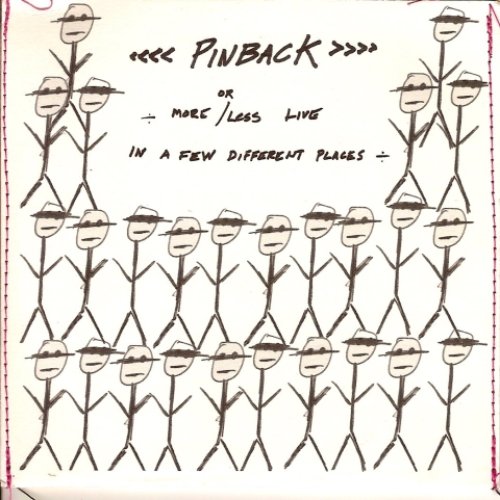 <<<< PINBACK >>>>
OR
÷ MORE / LESS LIVE
IN A FEW DIFFERENT PLACES ÷